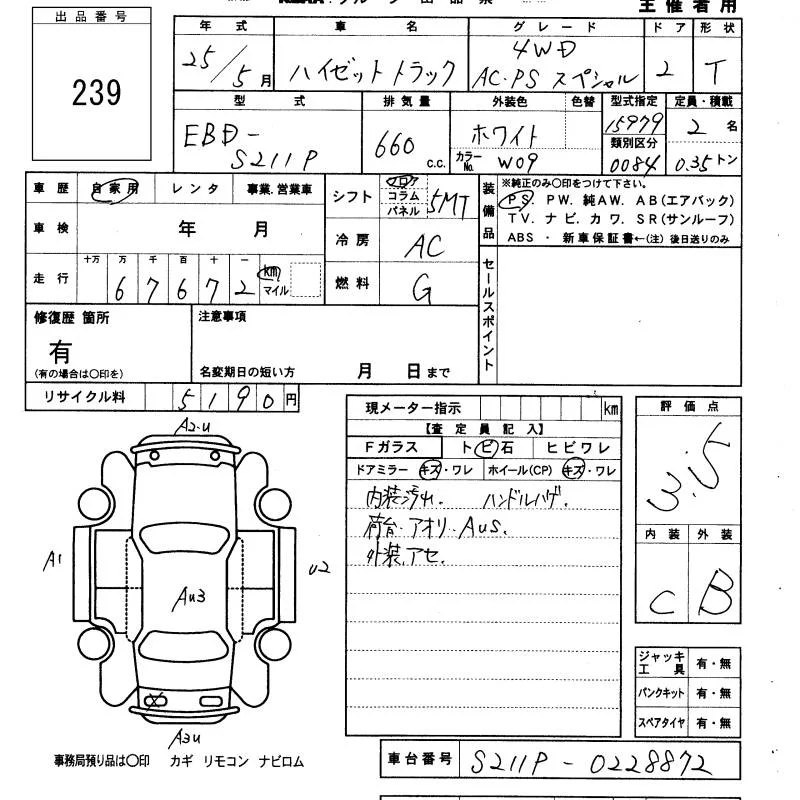 主催者用
出品番号
239
年式 車名 グレード ドア 形状
25/5月 ハイゼットトラック 4WD AC・PS スペシャル 2 T
型式 排気量 外装色 色替 型式指定 定員・積載
EBD-S211P 660 c.c. ホワイト 15979 2名
カラーNo. W09 類別区分 0084 0.35トン
車歴 自家用 レンタ 事業.営業車
車検 年 月
走行 十万 万 千 百 十 一
6 7 6 7 2 km マイル
シフト フロア コラム パネル 5MT
冷房 AC
燃料 G
装備品 ※純正のみ○印をつけて下さい。
PS. PW. 純AW. AB(エアバック)
TV. ナビ. カワ. SR(サンルーフ)
ABS ・ 新車保証書←(注) 後日送りのみ
セールスポイント
修復歴 箇所 注意事項
有
(有の場合は○印を) 名変期日の短い方 月 日まで
リサイクル料 5190円
現メーター指示 km
【査定員記入】
Fガラス トビ石 ヒビワレ
ドアミラー キズ・ワレ ホイール(CP) キズ・ワレ
内装汚れ. ハンドルハゲ.
荷台・アオリ・AUS.
外装.アセ.
評価点
3.5
内装 外装
C B
A2・U
A1
U2
AU3
A3U
ジャッキ工具 有・無
パンクキット 有・無
スペアタイヤ 有・無
事務局預り品は○印 カギ リモコン ナビロム
車台番号 S211P-0228872